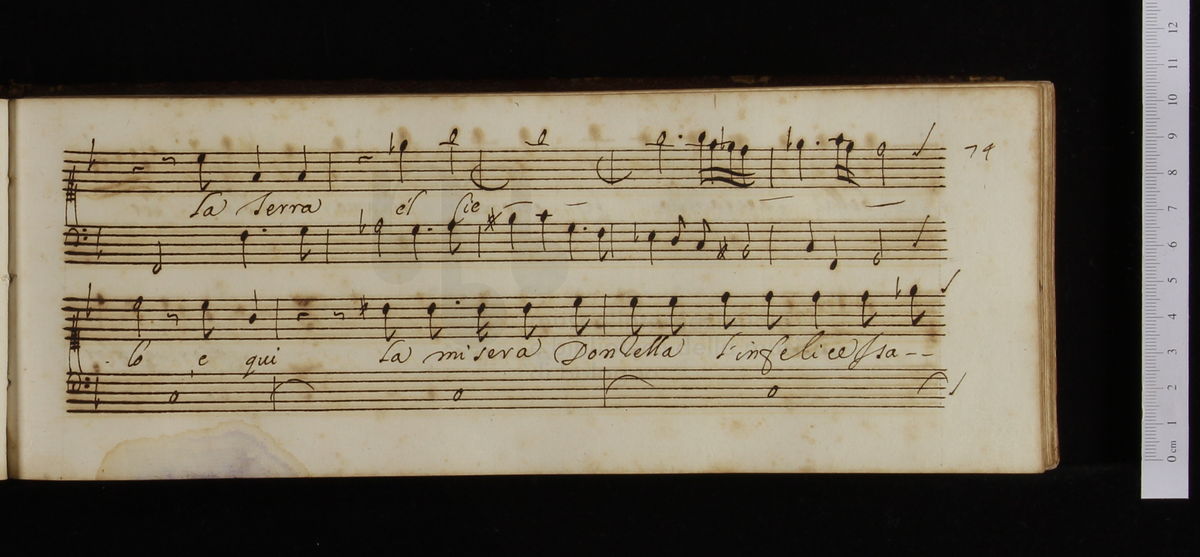 74
la Terra el Cie
lo e qui la misera Donzella l'infelice ssa--
0 cm 1 2 3 4 5 6 7 8 9 10 11 12